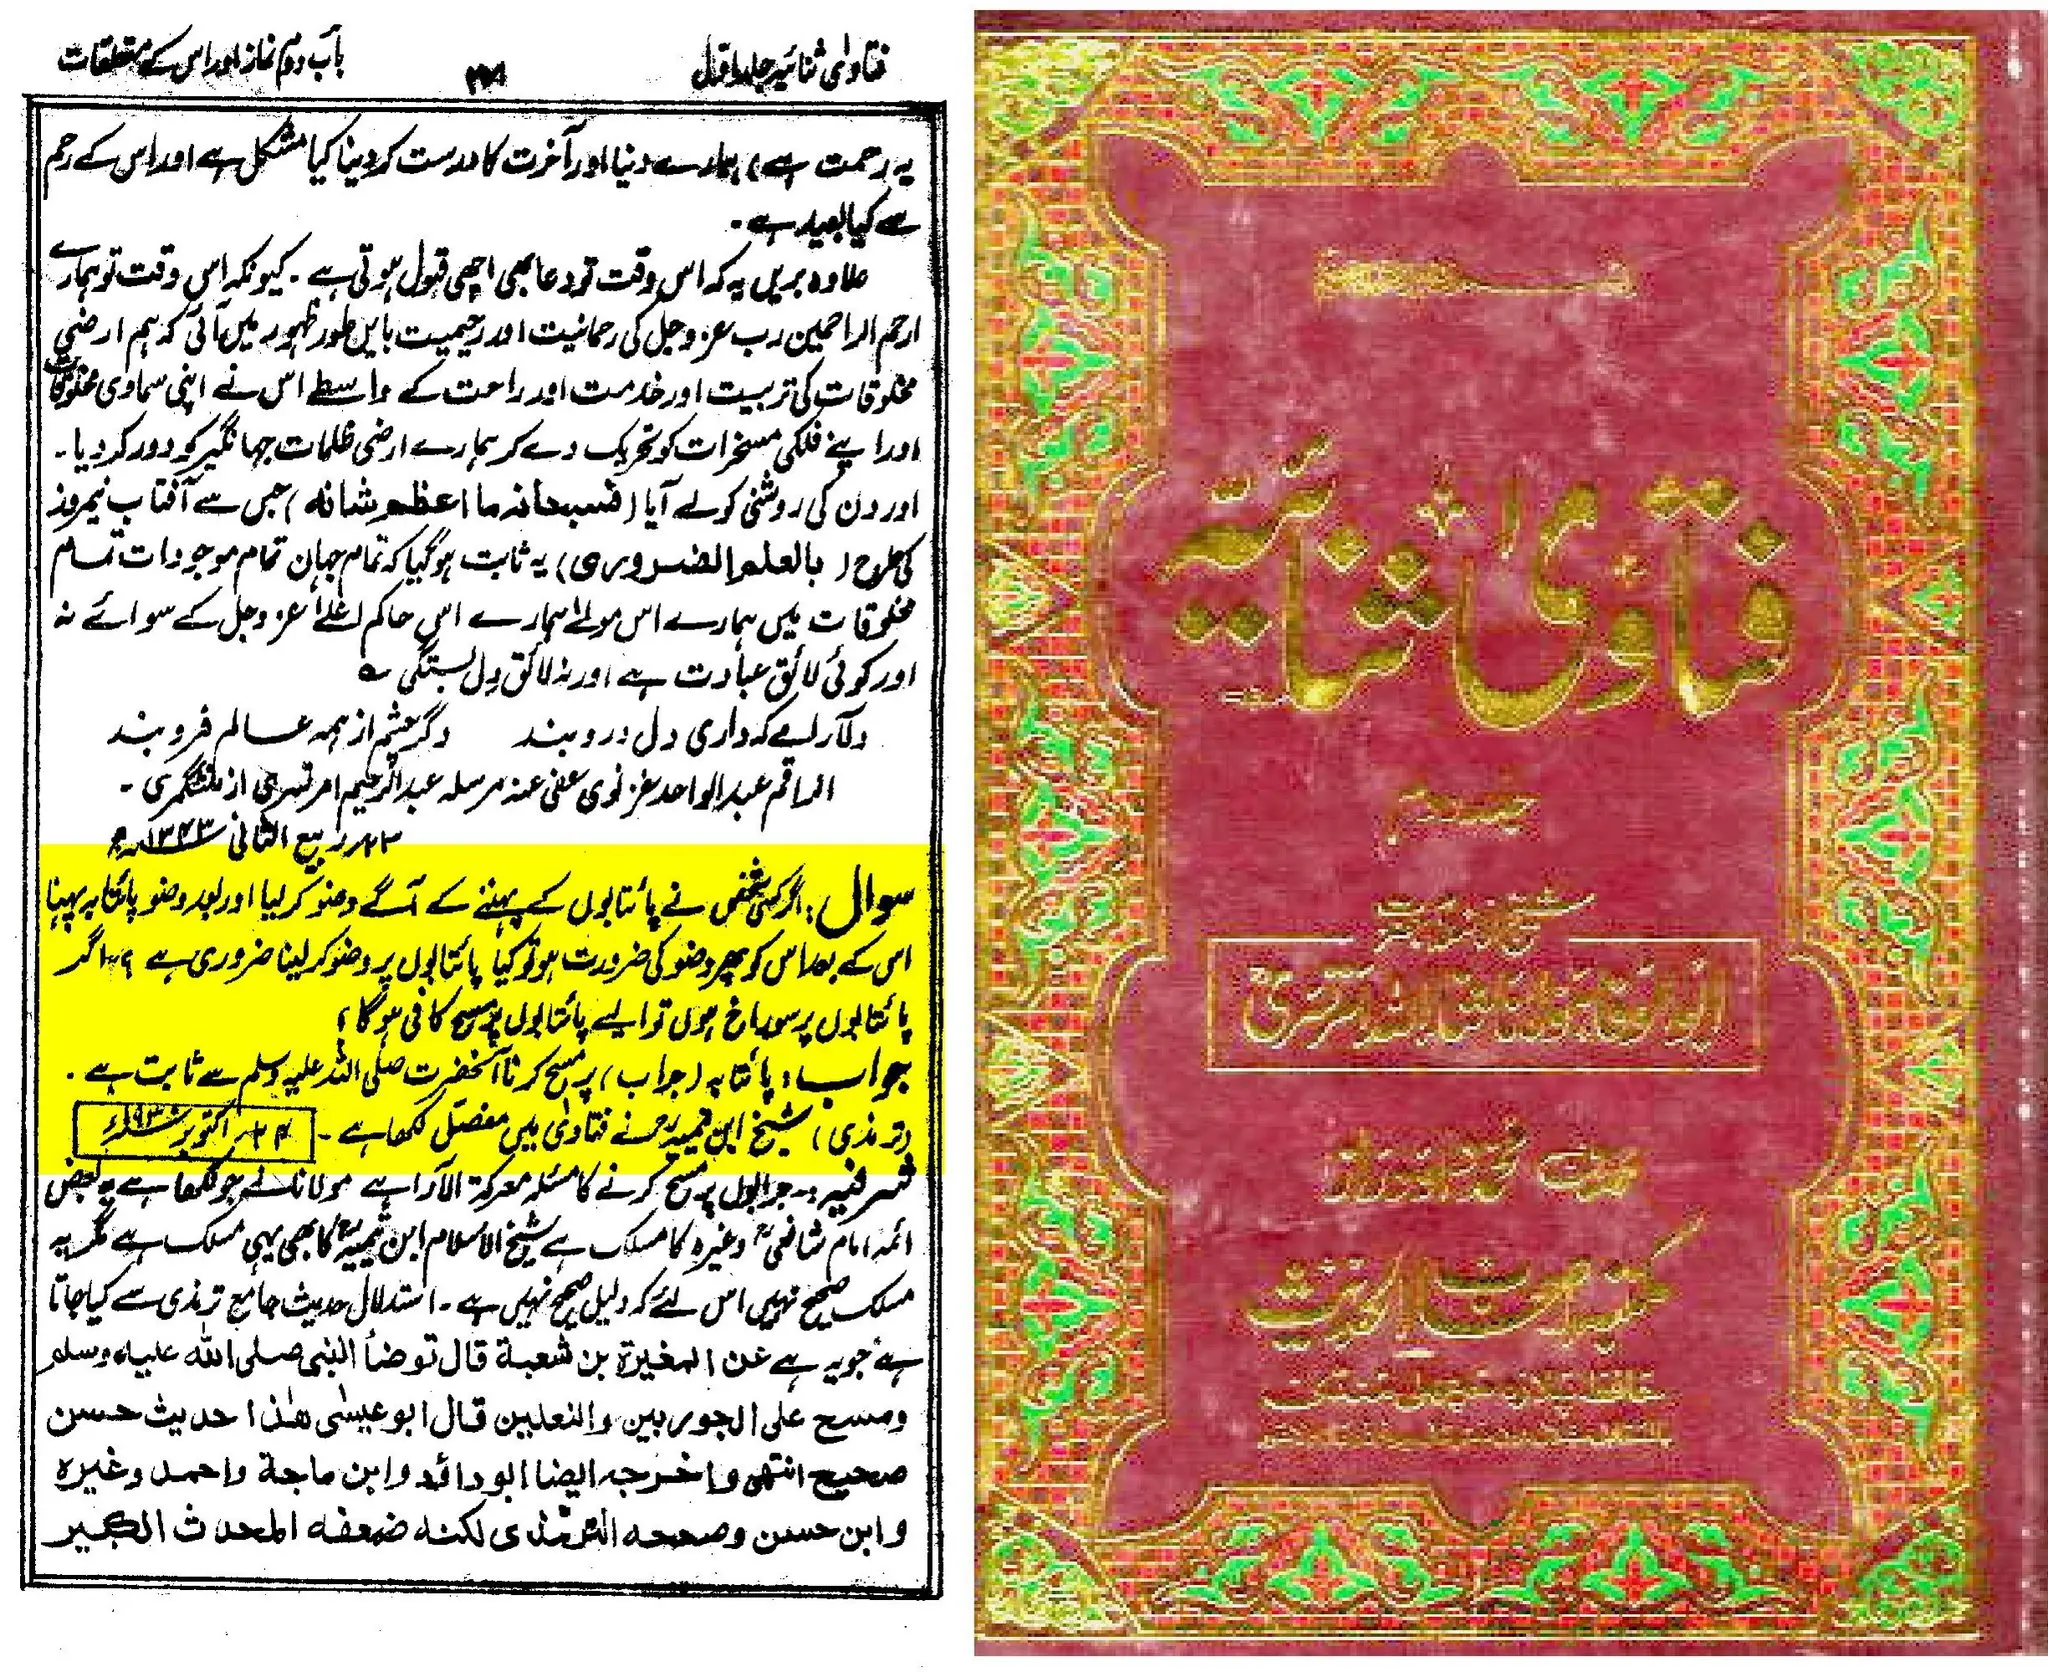 فتاویٰ ثنائیہ جلد اوّل
۴۴۱
باب دوم نماز اور اس کے متعلقات
یہ رحمت ہے) ہمارے دنیا اور آخرت کا درست کر دینا کیا مشکل ہے اور اس کے رحم
سے کیا بعید ہے۔
علاوہ بریں یہ کہ اس وقت تو دعا بھی اچھی قبول ہوتی ہے۔ کیونکہ اس وقت تو ہمارے
ارحم الراحمین رب عز وجل کی رحمانیت اور رحیمیت بایں طور ظہور میں آئی کہ ہم ارضی
مخلوقات کی تربیت اور خدمت اور راحت کے واسطے اس نے اپنی سماوی مخلوقات
اور اپنے فلکی مسخرات کو تحریک دے کر ہمارے ارضی ظلمات جہانگیر کو دور کر دیا۔
اور دن کی روشنی کو لے آیا (فسبحانہ ما اعظم شانہ) جس سے آفتاب نیمروز
کی طرح (بالعلم الضروری) یہ ثابت ہو گیا کہ تمام جہان تمام موجودات تمام
مخلوقات میں ہمارے اس مولےٰ ہمارے اس حاکم اعلےٰ عز وجل کے سوائے نہ
اور کوئی لائق عبادت ہے اور نہ لائق دل بستگی ؎
دلآرامے کہ داری دل درو بند دگر چشم از ہمہ عالم فرو بند
الراقم عبد الواحد غزنوی عفی عنہ مرسلہ عبد الرحیم امرتسری از منٹگمری۔
۲۲ ربیع الثانی ۱۳۴۳ھ
سوال: اگر کسی شخص نے پائتابوں کے پہننے کے آگے وضو کر لیا اور بعد وضو پائتابہ پہنا
اس کے بعد اس کو پھر وضو کی ضرورت ہو تو کیا پائتابوں پر وضو کر لینا ضروری ہے؟ ۲۔ اگر
پائتابوں پر سوراخ ہوں تو ایسے پائتابوں پر مسح کافی ہو گا؟
جواب: پائتابہ (جراب) پر مسح کرنا آنحضرت صلی اللہ علیہ وسلم سے ثابت ہے۔
(ترمذی) شیخ ابن تیمیہؒ نے فتاویٰ میں مفصل لکھا ہے۔ ۲۴ اکتوبر ۱۹۳۰ء
شرفیہ:۔ جرابوں پر مسح کرنے کا مسئلہ معرکۃ الآرا ہے مولانا نے جو لکھا ہے یہ بعض
ائمہ امام شافعیؒ وغیرہ کا مسلک ہے شیخ الاسلام ابن تیمیہؒ کا بھی یہی مسلک ہے مگر یہ
مسلک صحیح نہیں اس لئے کہ دلیل صحیح نہیں ہے۔ استدلال حدیث جامع ترمذی سے کیا جاتا
ہے جو یہ ہے عن المغیرۃ بن شعبۃ قال توضأ النبی صلی اللہ علیہ وسلم
ومسح علی الجوربین والنعلین قال ابو عیسیٰ ھٰذا حدیث حسن
صحیح انتھی واخرجہ ایضا ابو داؤد وابن ماجۃ واحمد وغیرہ
وابن حسن وصححہ الترمذی لکنہ ضعفہ المحدث الکبیر
فتاویٰ ثنائیہ
ابو الوفاء ثناء اللہ امرتسری